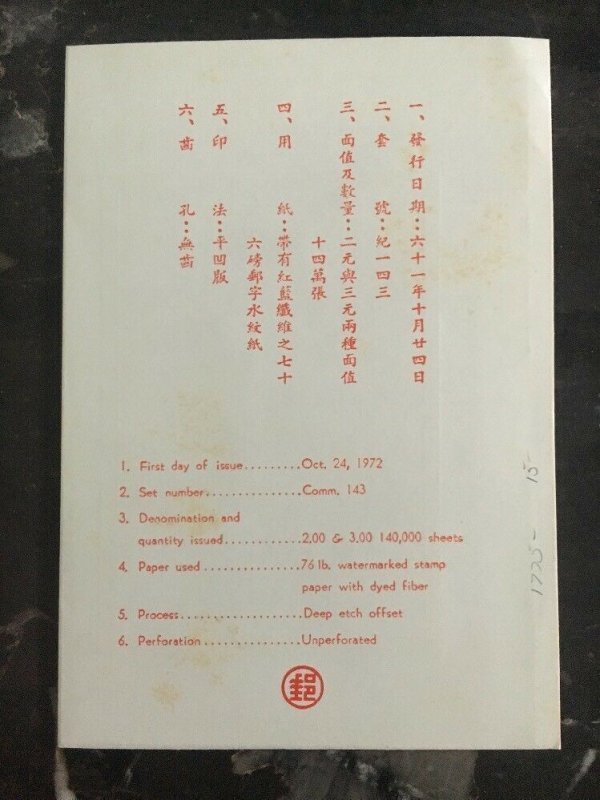 一、發行日期：六十一年十月廿四日
二、套號：紀一四三
三、面值及數量：二元與三元兩種面值
十四萬張
四、用紙：帶有紅藍纖維之七十
六磅郵字水紋紙
五、印法：平凹版
六、齒孔：無齒
1. First day of issue.........Oct. 24, 1972
2. Set number...............Comm. 143
3. Denomination and
quantity issued............2.00 & 3.00 140,000 sheets
4. Paper used...............76 lb. watermarked stamp
paper with dyed fiber
5. Process...................Deep etch offset
6. Perforation...............Unperforated
郵
15-
1725-